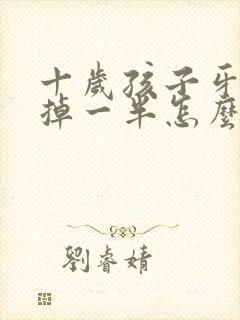 十歲孩子牙
掉一半怎麼
劉睿婧